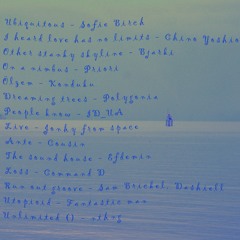 Ubiquitous - Sofie Birch
I heard love has no limits - Chino Yoshio
Other stanky skyline - Bjarki
On a nimbus - Priori
Olgem - Konduku
Dreaming trees - Polygonia
People know - SD_UA
Live - Jonky from space
Ante - Cousin
The sound house - Efdemin
Loss - Command D
Run out groove - Sam Brickel, Dashiell
Utopioid - Fantastic man
Unlimited